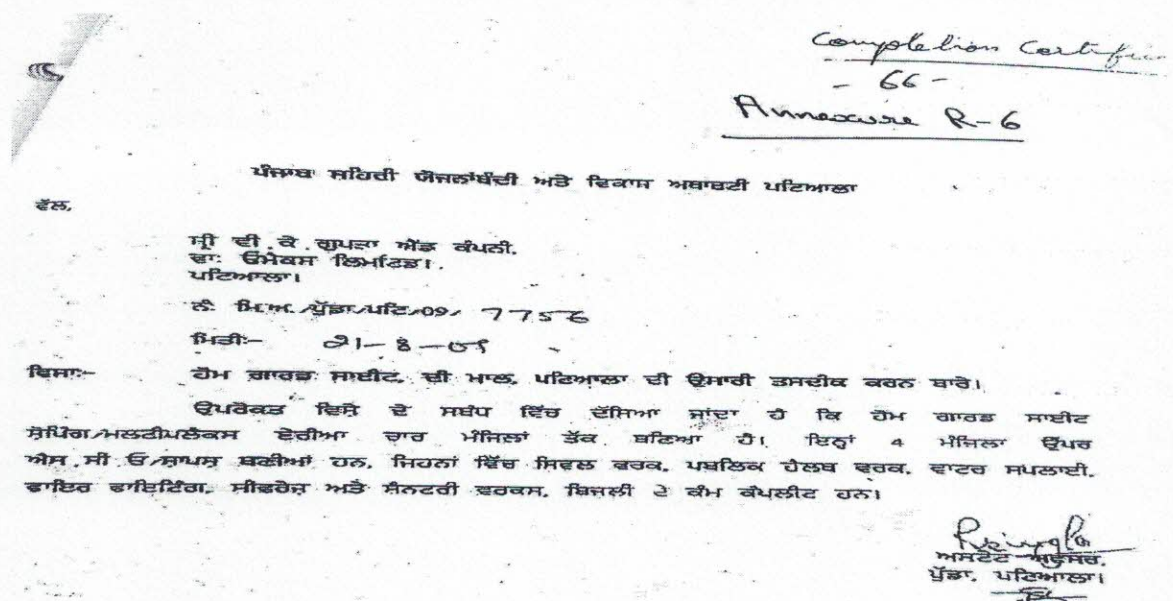 Completion Certific
- 66 -
Annexure R-6
ਪੰਜਾਬ ਸ਼ਹਿਰੀ ਯੋਜਨਾਬੰਦੀ ਅਤੇ ਵਿਕਾਸ ਅਥਾਰਟੀ ਪਟਿਆਲਾ
ਵੱਲ,
ਸ੍ਰੀ ਵੀ.ਕੇ.ਗੁਪਤਾ ਐਂਡ ਕੰਪਨੀ.
ਓਮੈਕਸ ਲਿਮਟਿਡ।
ਪਟਿਆਲਾ।
ਨੰ: ਮਿ.ਅ./ਪੁੱਡਾ/ਪਟਿ/09/ 7756
ਮਿਤੀ:- 21-8-09
ਵਿਸ਼ਾ:- ਹੋਮ ਗਾਰਡ ਸਾਈਟ, ਦੀ ਮਾਲ, ਪਟਿਆਲਾ ਦੀ ਉਸਾਰੀ ਤਸਦੀਕ ਕਰਨ ਬਾਰੇ।
ਉਪਰੋਕਤ ਵਿਸ਼ੇ ਦੇ ਸਬੰਧ ਵਿੱਚ ਦੱਸਿਆ ਜਾਂਦਾ ਹੈ ਕਿ ਹੋਮ ਗਾਰਡ ਸਾਈਟ
ਸ਼ੋਪਿੰਗ/ਮਲਟੀਪਲੈਕਸ ਏਰੀਆ ਚਾਰ ਮੰਜਿਲਾਂ ਤੱਕ ਬਣਿਆ ਹੈ। ਇਨ੍ਹਾਂ 4 ਮੰਜਿਲਾ ਉਪਰ
ਐਸ.ਸੀ.ਓ/ਸ਼ਾਪਸ ਬਣੀਆਂ ਹਨ, ਜਿਹਨਾਂ ਵਿੱਚ ਸਿਵਲ ਵਰਕ, ਪਬਲਿਕ ਹੈਲਥ ਵਰਕ, ਵਾਟਰ ਸਪਲਾਈ,
ਫਾਇਰ ਫਾਇਟਿੰਗ, ਸੀਵਰੇਜ ਅਤੇ ਸੈਨਟਰੀ ਵਰਕਸ, ਬਿਜਲੀ ਦੇ ਕੰਮ ਕੰਪਲੀਟ ਹਨ।
ਅਸਟੇਟ ਅਫਸਰ,
ਪੁੱਡਾ, ਪਟਿਆਲਾ।